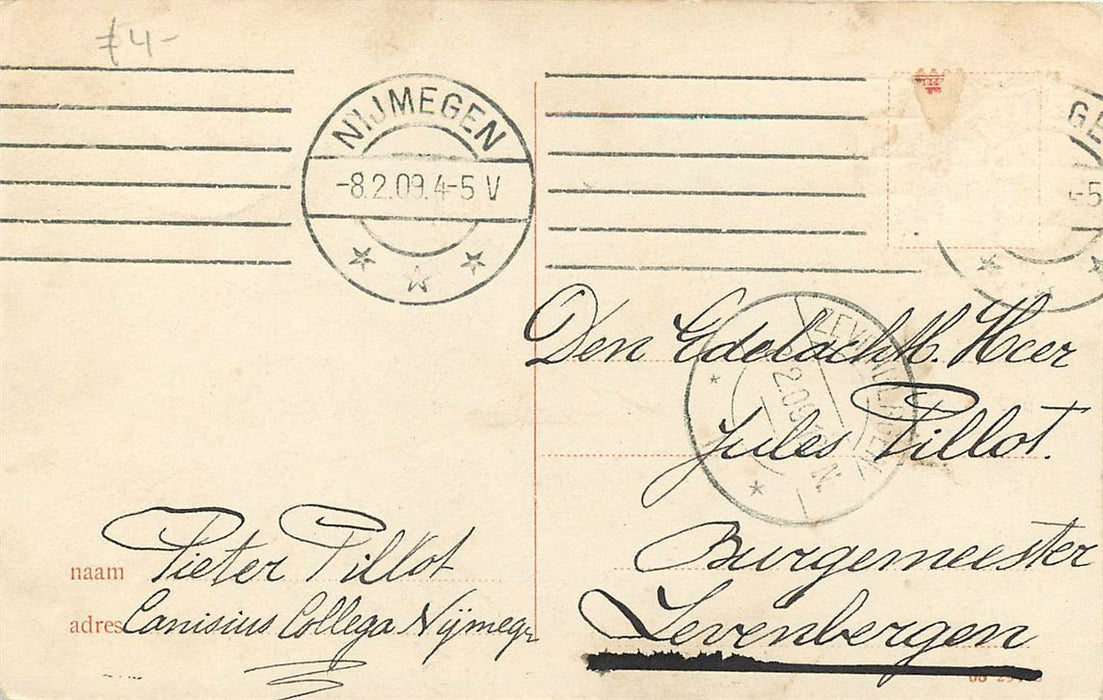 f4-
NIJMEGEN
-8.2.09.4-5 V
GE
4-5
Den Edelachtb. Heer
ZEVENBERGEN
2.09
Jules Pillot.
Burgemeester
Zevenbergen
naam Pieter Pillot
adres Canisius Collega Nijmegn
08